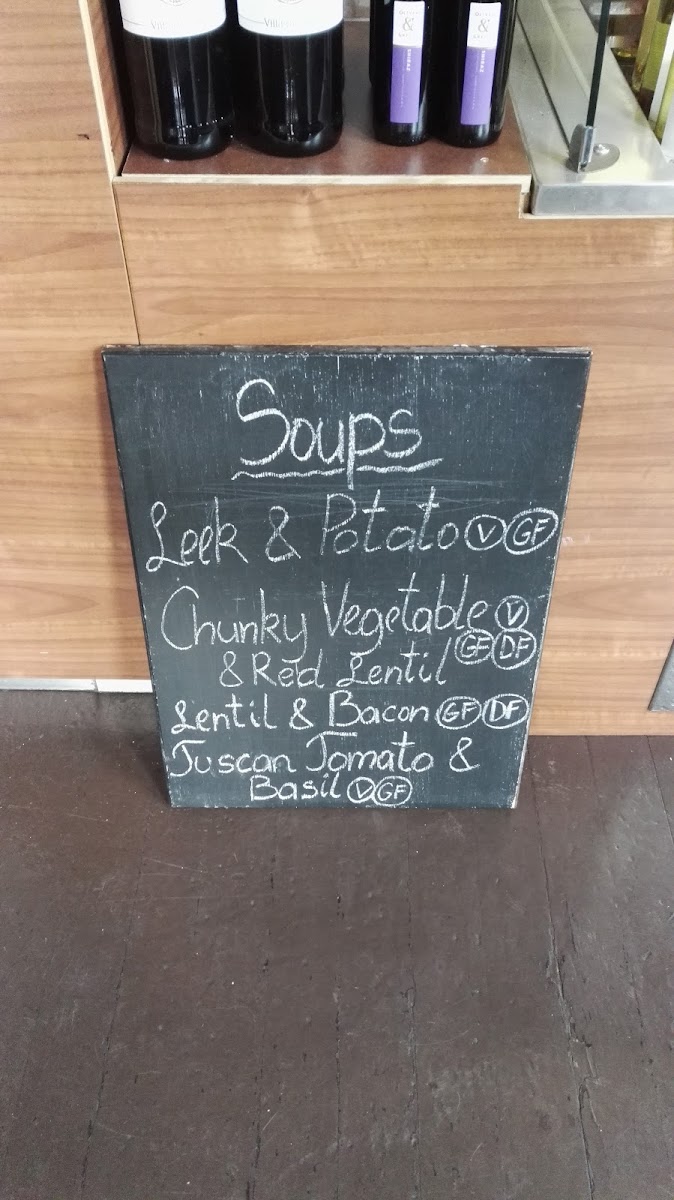 &
&
SHIRAZ
SHIRAZ
Soups
Leek & Potato V GF
Chunky Vegetable V
& Red Lentil GF DF
Lentil & Bacon GF DF
Tuscan Tomato &
Basil V GF